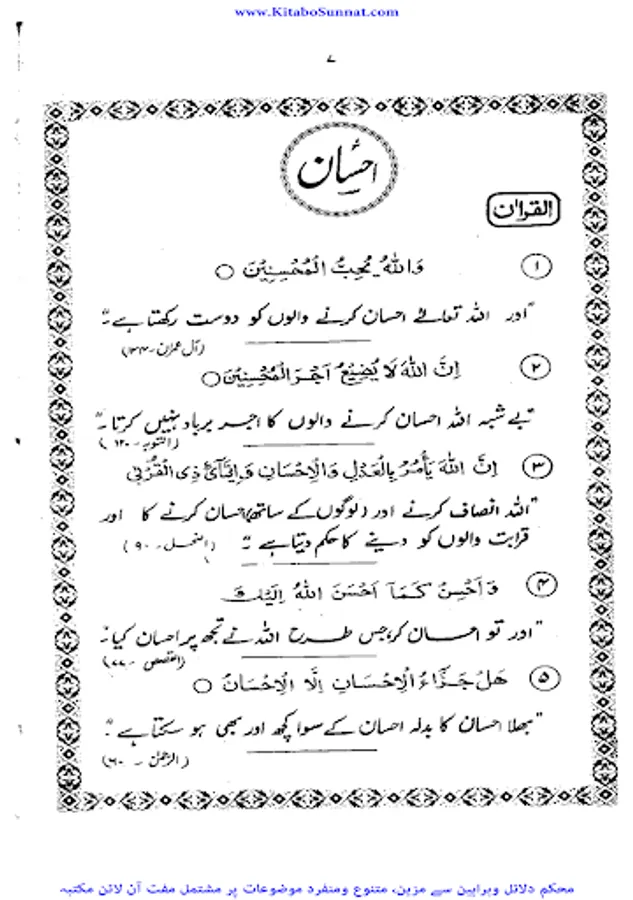 www.KitaboSunnat.com
۷
احسان
القرآن
۱ وَاللهُ يُحِبُّ الْمُحْسِنِيْنَ ○
"اور اللہ تعالےٰ احسان کرنے والوں کو دوست رکھتا ہے"
(آل عمران - ۱۳۴)
۲ اِنَّ اللهَ لَا يُضِيْعُ اَجْرَ الْمُحْسِنِيْنَ ○
"بے شبہ اللہ احسان کرنے والوں کا اجر برباد نہیں کرتا"
(التوبہ - ۱۲۰)
۳ اِنَّ اللهَ يَأْمُرُ بِالْعَدْلِ وَالْاِحْسَانِ وَاِيْتَآئِ ذِى الْقُرْبٰى
"اللہ انصاف کرنے اور (لوگوں کے ساتھ) احسان کرنے کا اور
قرابت والوں کو دینے کا حکم دیتا ہے" (النحل - ۹۰)
۴ وَاَحْسِنْ كَمَآ اَحْسَنَ اللهُ اِلَيْكَ
"اور تو احسان کر، جس طرح اللہ نے تجھ پر احسان کیا"
(القصص - ۷۷)
۵ هَلْ جَزَآءُ الْاِحْسَانِ اِلَّا الْاِحْسَانُ ○
"بھلا احسان کا بدلہ احسان کے سوا کچھ اور بھی ہو سکتا ہے"
(الرحمٰن - ۶۰)
محکم دلائل وبراہین سے مزین، متنوع ومنفرد موضوعات پر مشتمل مفت آن لائن مکتبہ